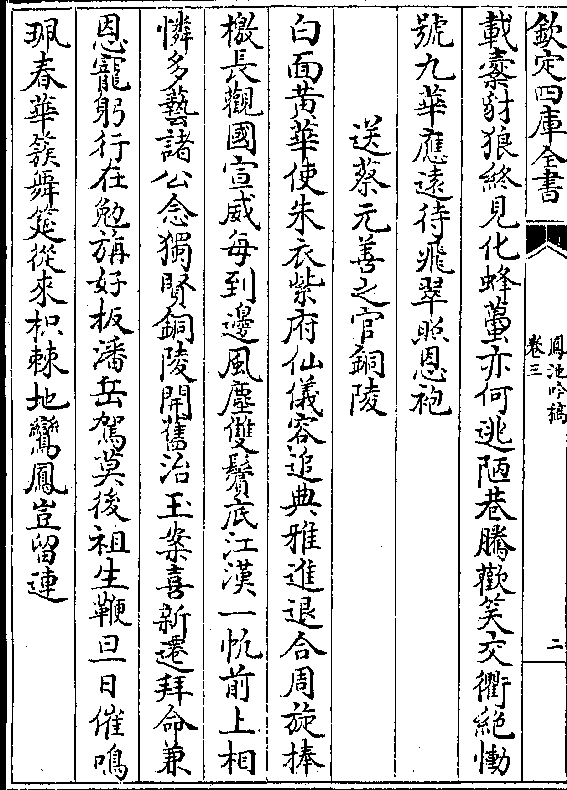 欽定四庫全書
鳳池吟稿
卷三
二
載櫜豺狼終見化蜂蠆亦何逃陋巷騰歡笑交衢絶慟
號九華應遠待飛翠照恩袍
送蔡元善之官銅陵
白面黄華使朱衣紫府仙儀容追典雅進退合周旋捧
檄長觀國宣威每到邊風塵雙鬢底江漢一帆前上相
憐多藝諸公念獨賢銅陵開舊治玉案喜新遷拜命兼
恩寵躬行在勉旃好扳潘岳駕莫後祖生鞭旦日催鳴
珮春華簇舞筵從來枳棘地鸞鳳豈留連